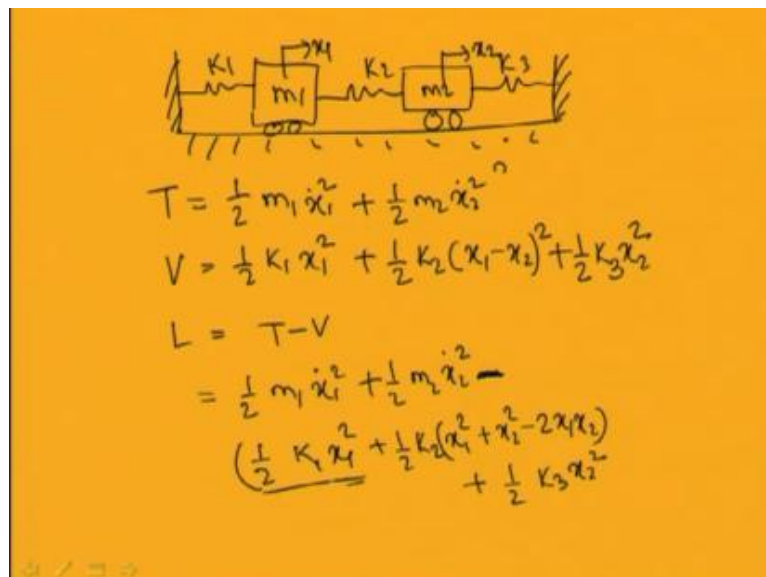 K1 x1 K2 x2 K3
m1 m2
T = 1/2 m₁ẋ₁² + 1/2 m₂ẋ₂²
V = 1/2 K₁x₁² + 1/2 K₂(x₁-x₂)² + 1/2 K₃x₂²
L = T-V
= 1/2 m₁ẋ₁² + 1/2 m₂ẋ₂² -
(1/2 K₁x₁² + 1/2 K₂(x₁² + x₂² - 2x₁x₂)
+ 1/2 K₃x₂²